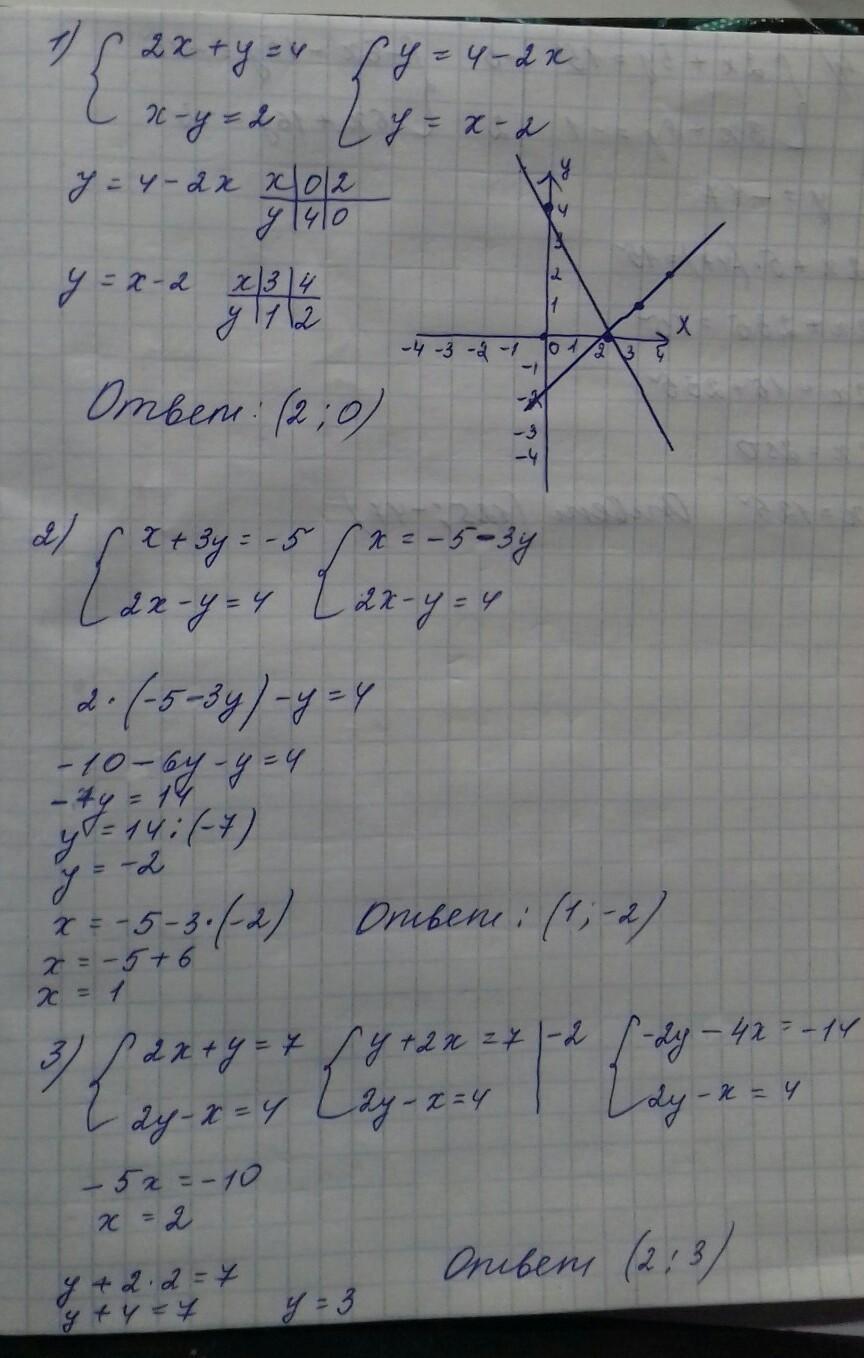 1) { 2x + y = 4 { y = 4 - 2x
x - y = 2 y = x - 2
y = 4 - 2x x | 0 | 2
y | 4 | 0
y = x - 2 x | 3 | 4
y | 1 | 2
y
4
3
2
1
-4 -3 -2 -1 0 1 2 3 4 X
-1
-2
-3
-4
Ответ: (2; 0)
2) { x + 3y = -5 { x = -5 - 3y
2x - y = 4 2x - y = 4
2 · (-5 - 3y) - y = 4
-10 - 6y - y = 4
-7y = 14
y = 14 : (-7)
y = -2
x = -5 - 3 · (-2) Ответ: (1; -2)
x = -5 + 6
x = 1
3) { 2x + y = 7 { y + 2x = 7 | -2 { -2y - 4x = -14
2y - x = 4 2y - x = 4 2y - x = 4
-5x = -10
x = 2
y + 2 · 2 = 7 Ответ (2; 3)
y + 4 = 7 y = 3